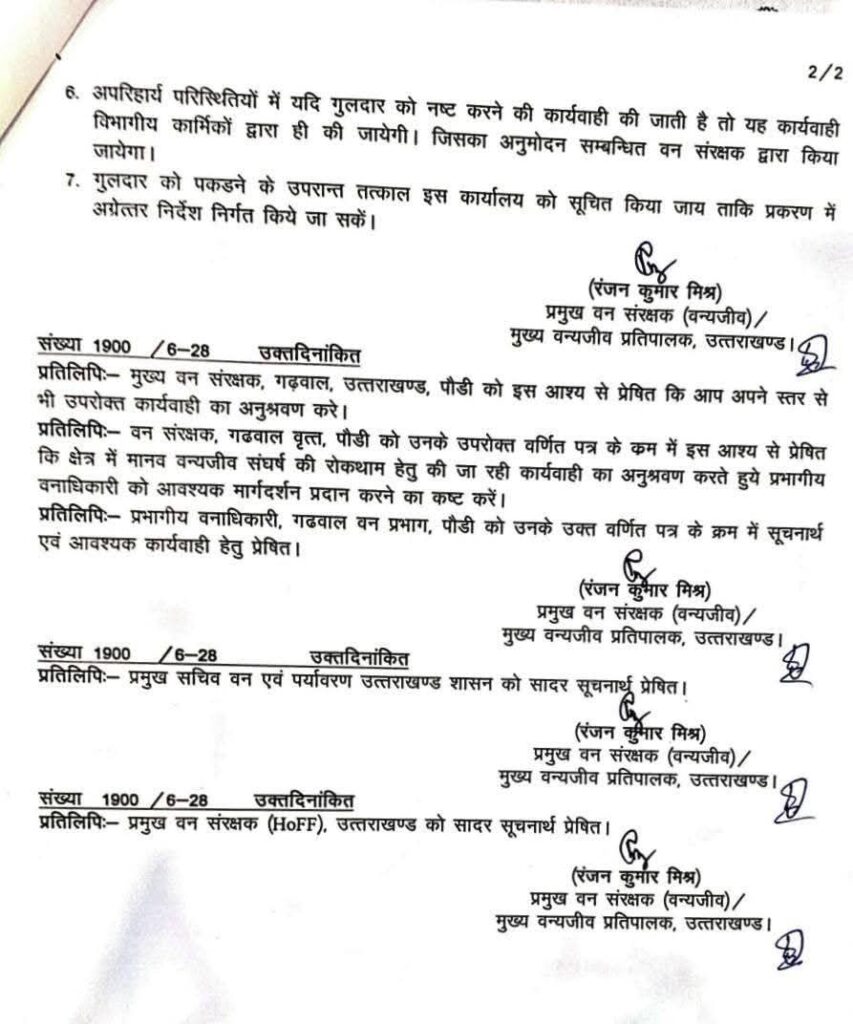 2/2
6. अपरिहार्य परिस्थितियों में यदि गुलदार को नष्ट करने की कार्यवाही की जाती है तो यह कार्यवाही
विभागीय कार्मिकों द्वारा ही की जायेगी। जिसका अनुमोदन सम्बन्धित वन संरक्षक द्वारा किया
जायेगा।
7. गुलदार को पकडने के उपरान्त तत्काल इस कार्यालय को सूचित किया जाय ताकि प्रकरण में
अग्रेत्तर निर्देश निर्गत किये जा सकें।
(रंजन कुमार मिश्र)
प्रमुख वन संरक्षक (वन्यजीव)/
मुख्य वन्यजीव प्रतिपालक, उत्तराखण्ड।
संख्या 1900 /6–28 उक्तदिनांकित
प्रतिलिपिः– मुख्य वन संरक्षक, गढ़वाल, उत्तराखण्ड, पौडी को इस आश्य से प्रेषित कि आप अपने स्तर से
भी उपरोक्त कार्यवाही का अनुश्रवण करे।
प्रतिलिपिः– वन संरक्षक, गढवाल वृत्त, पौडी को उनके उपरोक्त वर्णित पत्र के क्रम में इस आश्य से प्रेषित
कि क्षेत्र में मानव वन्यजीव संघर्ष की रोकथाम हेतु की जा रही कार्यवाही का अनुश्रवण करते हुये प्रभागीय
वनाधिकारी को आवश्यक मार्गदर्शन प्रदान करने का कष्ट करें।
प्रतिलिपिः– प्रभागीय वनाधिकारी, गढवाल वन प्रभाग, पौडी को उनके उक्त वर्णित पत्र के क्रम में सूचनार्थ
एवं आवश्यक कार्यवाही हेतु प्रेषित।
(रंजन कुमार मिश्र)
प्रमुख वन संरक्षक (वन्यजीव)/
मुख्य वन्यजीव प्रतिपालक, उत्तराखण्ड।
संख्या 1900 /6–28 उक्तदिनांकित
प्रतिलिपिः– प्रमुख सचिव वन एवं पर्यावरण उत्तराखण्ड शासन को सादर सूचनार्थ प्रेषित।
(रंजन कुमार मिश्र)
प्रमुख वन संरक्षक (वन्यजीव)/
मुख्य वन्यजीव प्रतिपालक, उत्तराखण्ड।
संख्या 1900 /6–28 उक्तदिनांकित
प्रतिलिपिः– प्रमुख वन संरक्षक (HoFF), उत्तराखण्ड को सादर सूचनार्थ प्रेषित।
(रंजन कुमार मिश्र)
प्रमुख वन संरक्षक (वन्यजीव)/
मुख्य वन्यजीव प्रतिपालक, उत्तराखण्ड।